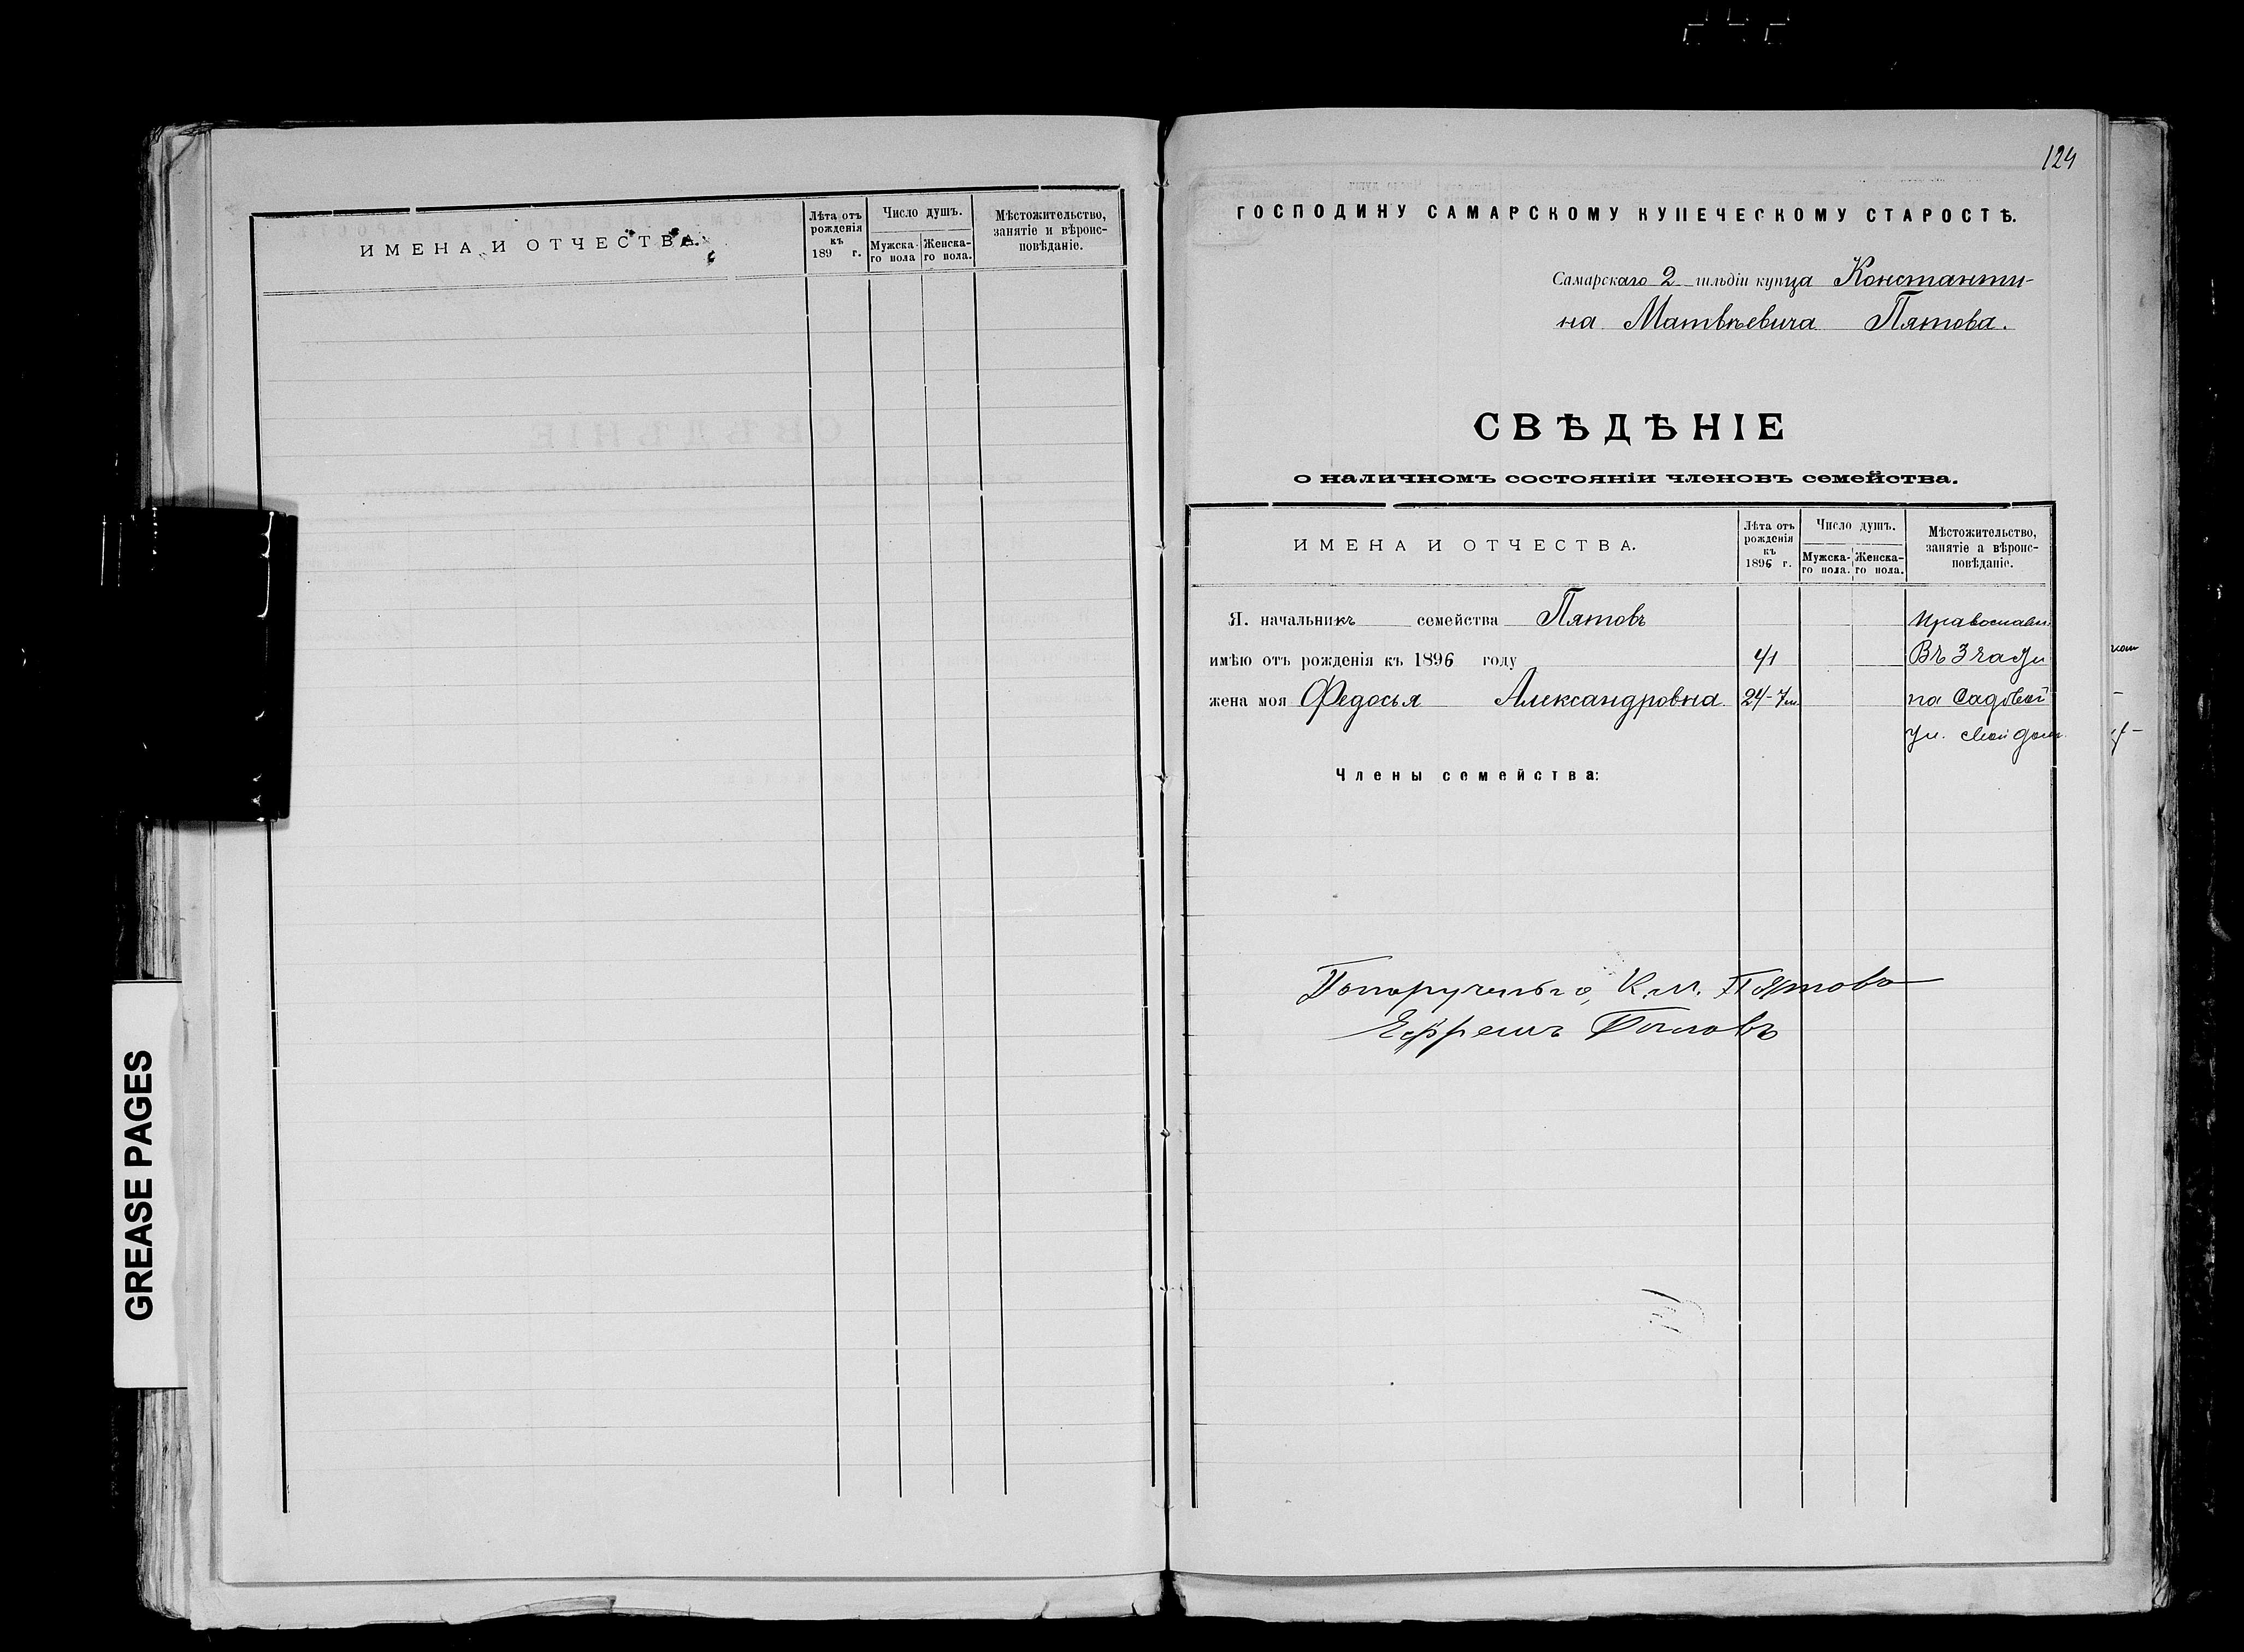 ИМЕНА И ОТЧЕСТВА.
Лѣта отъ рожденія къ 189 г.
Число душъ.
Мужскаго пола
Женскаго пола.
Мѣстожительство, занятіе и вѣроисповѣданіе.
GREASE PAGES
124
ГОСПОДИНУ САМАРСКОМУ КУПЕЧЕСКОМУ СТАРОСТѢ.
Самарскаго 2 гильдіи купца Константи-
на Матвѣевича Пятова.
СВѢДѢНІЕ
о наличномъ состояніи членовъ семейства.
ИМЕНА И ОТЧЕСТВА.
Лѣта отъ рожденія къ 1896 г.
Число душъ.
Мужска-го пола.
Женска-го пола.
Мѣстожительство, занятіе а вѣроис-повѣданіе.
Я. начальникъ семейства Пятовъ Православн.
имѣю отъ рожденія къ 1896 году 41 Въ 3 части
жена моя Федосья Александровна 24-7м. по Садовой
ул. свой домъ
Члены семейства:
К. М. Пятова
Ефремъ